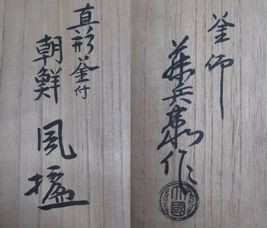 真形釜付
朝鮮
風爐
釜師
兵衛作